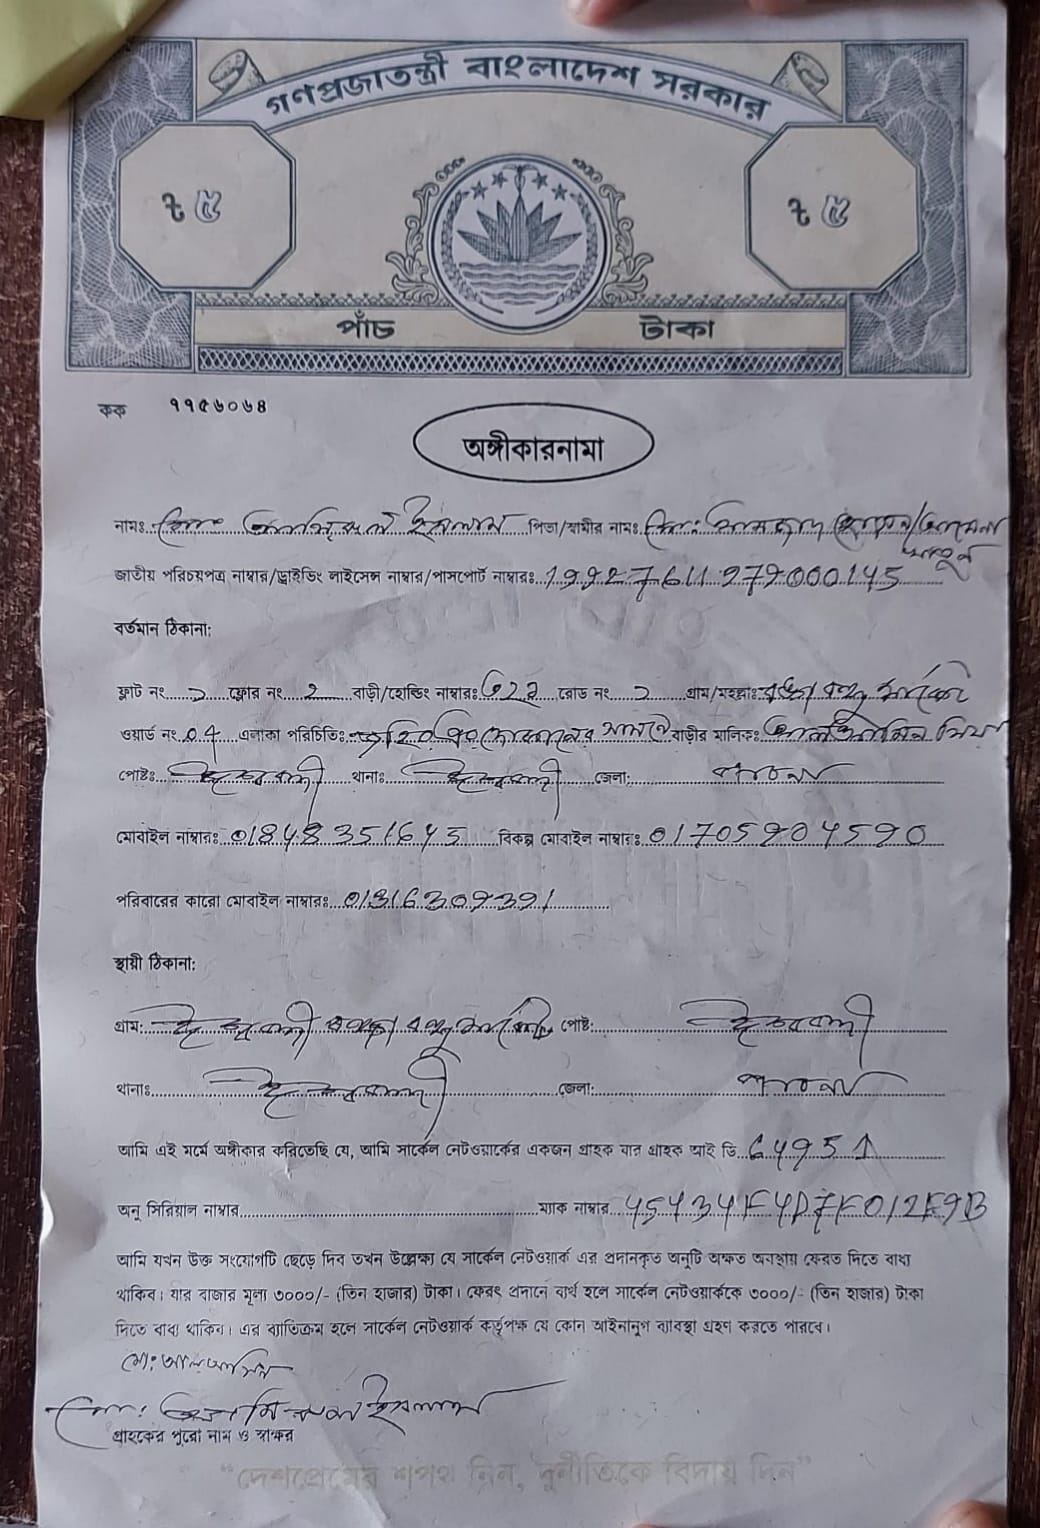 গণপ্রজাতন্ত্রী বাংলাদেশ সরকার
৳ ৫ ৳ ৫
পাঁচ টাকা
কক ৭৭৫৬০৬৪
অঙ্গীকারনামা
নামঃ মো: ইসলাম পিতা/স্বামীর নামঃ মো:
জাতীয় পরিচয়পত্র নাম্বার/ড্রাইভিং লাইসেন্স নাম্বার/পাসপোর্ট নাম্বারঃ 19927611272000145
বর্তমান ঠিকানা:
ফ্লাট নং ফ্লোর নং 2 বাড়ী/হোল্ডিং নাম্বারঃ রোড নং গ্রাম/মহল্লাঃ
ওয়ার্ড নং 04 এলাকা পরিচিতিঃ বাড়ীর মালিকঃ
পোষ্টঃ ঈশ্বরদী থানাঃ ঈশ্বরদী জেলা: পাবনা
মোবাইল নাম্বারঃ 01848351645 বিকল্প মোবাইল নাম্বারঃ 01705904590
পরিবারের কারো মোবাইল নাম্বারঃ
স্থায়ী ঠিকানা:
গ্রাম: ঈশ্বরদী পোষ্ট: ঈশ্বরদী
থানাঃ ঈশ্বরদী জেলা: পাবনা
আমি এই মর্মে অঙ্গীকার করিতেছি যে, আমি সার্কেল নেটওয়ার্কের একজন গ্রাহক যার গ্রাহক আই ডি 64951
অনু সিরিয়াল নাম্বার ম্যাক নাম্বার 45434F4D7F012F9B
আমি যখন উক্ত সংযোগটি ছেড়ে দিব তখন উল্লেক্ষ্য যে সার্কেল নেটওয়ার্ক এর প্রদানকৃত অনুটি অক্ষত অবস্থায় ফেরত দিতে বাধ্য
থাকিব। যার বাজার মূল্য ৩০০০/- (তিন হাজার) টাকা। ফেরৎ প্রদানে ব্যর্থ হলে সার্কেল নেটওয়ার্ককে ৩০০০/- (তিন হাজার) টাকা
দিতে বাধ্য থাকিব। এর ব্যতিক্রম হলে সার্কেল নেটওয়ার্ক কর্তৃপক্ষ যে কোন আইনানুগ ব্যবস্থা গ্রহণ করতে পারবে।
মো: আল আমিন
মো: ইসলাম
গ্রাহকের পুরো নাম ও স্বাক্ষর
"দেশপ্রেমের শপথ নিন, দুর্নীতিকে বিদায় দিন"